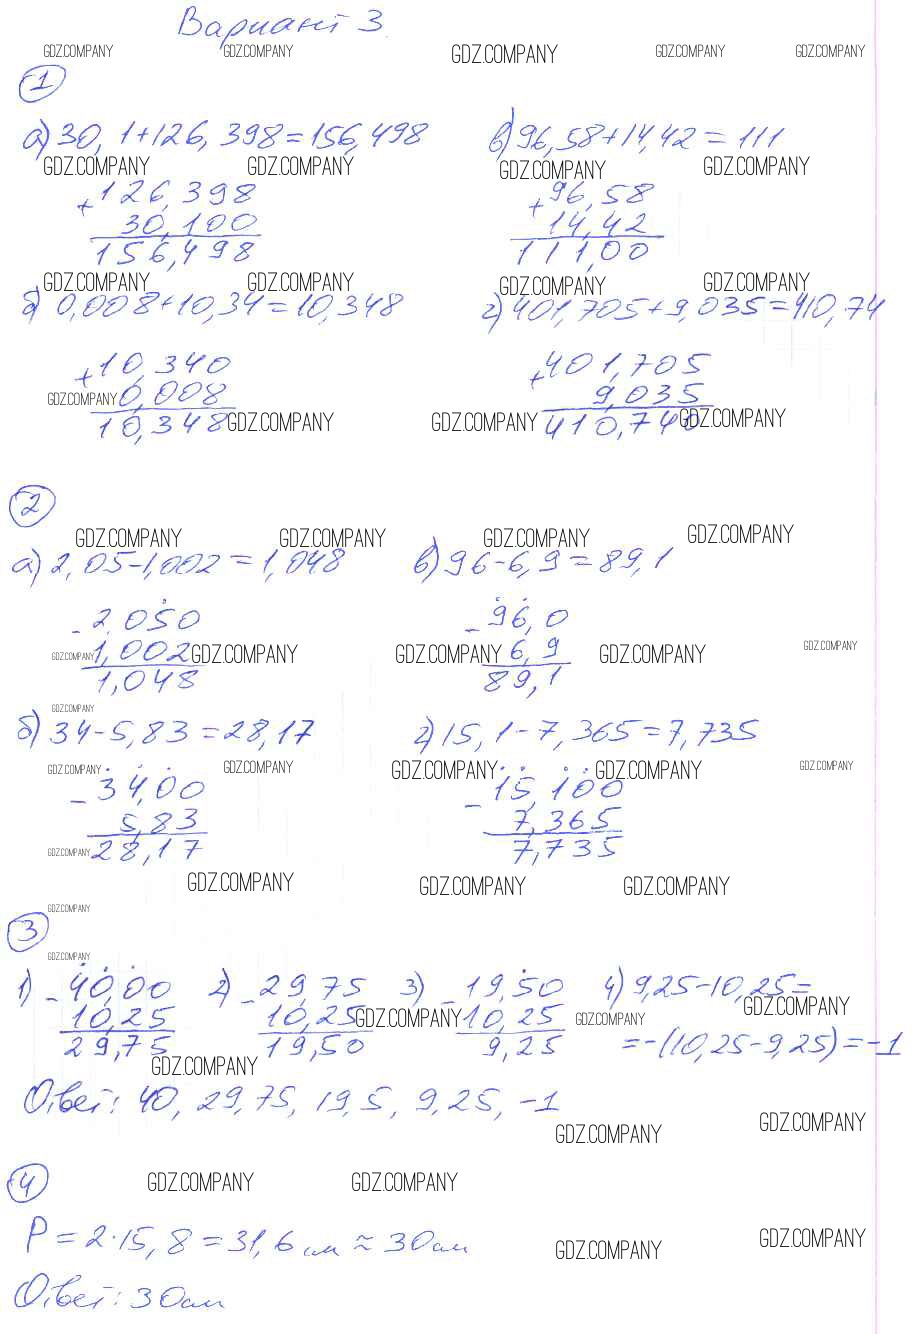 Вариант 3.
GDZ.COMPANY GDZ.COMPANY GDZ.COMPANY GDZ.COMPANY GDZ.COMPANY
1
а) 30,1+126,398=156,498 в) 96,58+14,42=111
GDZ.COMPANY GDZ.COMPANY GDZ.COMPANY GDZ.COMPANY
+126,398 +96,58
30,100 14,42
156,498 111,00
GDZ.COMPANY GDZ.COMPANY GDZ.COMPANY GDZ.COMPANY
б) 0,008+10,34=10,348 г) 401,705+9,035=410,74
+10,340 +401,705
GDZ.COMPANY 0,008 9,035
10,348 GDZ.COMPANY GDZ.COMPANY 410,740 GDZ.COMPANY
2
GDZ.COMPANY GDZ.COMPANY GDZ.COMPANY GDZ.COMPANY
а) 2,05-1,002=1,048 в) 96-6,9=89,1
-2,050 -96,0
GDZ.COMPANY 1,002 GDZ.COMPANY GDZ.COMPANY 6,9 GDZ.COMPANY GDZ.COMPANY
1,048 89,1
GDZ.COMPANY
б) 34-5,83=28,17 г) 15,1-7,365=7,735
GDZ.COMPANY GDZ.COMPANY GDZ.COMPANY GDZ.COMPANY GDZ.COMPANY
-34,00 -15,100
5,83 7,365
GDZ.COMPANY 28,17 7,735
GDZ.COMPANY GDZ.COMPANY GDZ.COMPANY
GDZ.COMPANY
3
GDZ.COMPANY
1) -40,00 2) -29,75 3) -19,50 4) 9,25-10,25=
10,25 10,25 GDZ.COMPANY 10,25 GDZ.COMPANY GDZ.COMPANY
29,75 19,50 9,25 =-(10,25-9,25)=-1
GDZ.COMPANY
Ответ: 40, 29,75, 19,5, 9,25, -1
GDZ.COMPANY GDZ.COMPANY
4
GDZ.COMPANY GDZ.COMPANY
P=2·15,8=31,6 см ≈ 30 см
GDZ.COMPANY GDZ.COMPANY
Ответ: 30 см